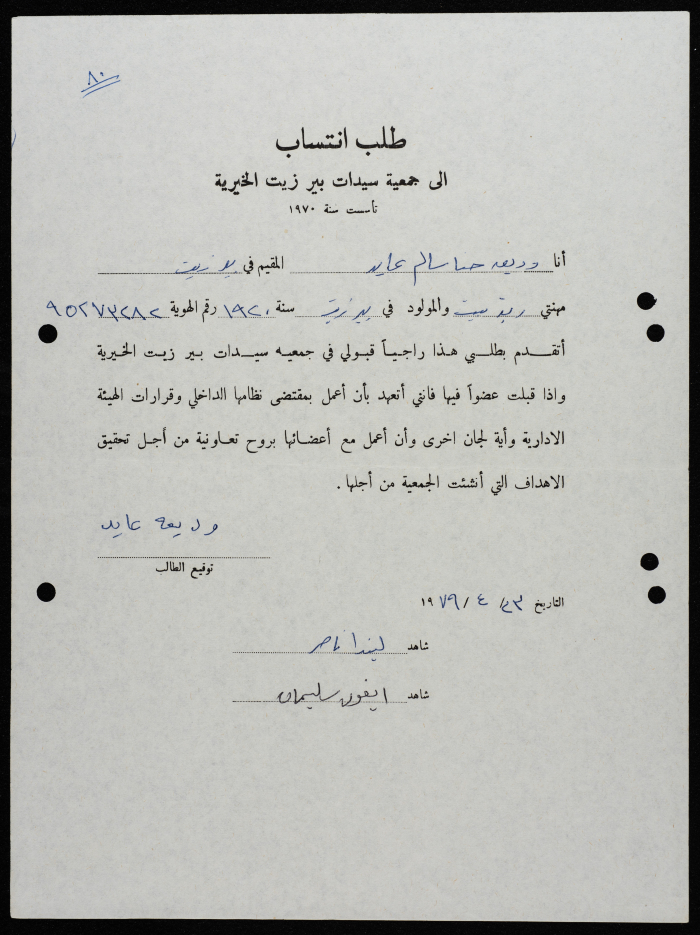 ٨٠
طلب انتساب
الى جمعية سيدات بير زيت الخيرية
تأسست سنة ١٩٧٠
أنا وديعه حنا سالم عايد المقيم في بير زيت
مهنتي ربة بيت والمولود في بير زيت سنة ١٩٢٠ رقم الهوية ٩٥٢٧٣٢٨٢
أتقدم بطلبي هذا راجياً قبولي في جمعيه سيدات بير زيت الخيرية
واذا قبلت عضواً فيها فانني أتعهد بأن أعمل بمقتضى نظامها الداخلي وقرارات الهيئة
الادارية وأية لجان اخرى وأن أعمل مع أعضائها بروح تعاونية من أجل تحقيق
الاهداف التي أنشئت الجمعية من أجلها .
وديعه عايد
توقيع الطالب
التاريخ ٢٣/ ٤ / ١٩٧٩
شاهد ليندا ناصر
شاهد ايفون سليمان